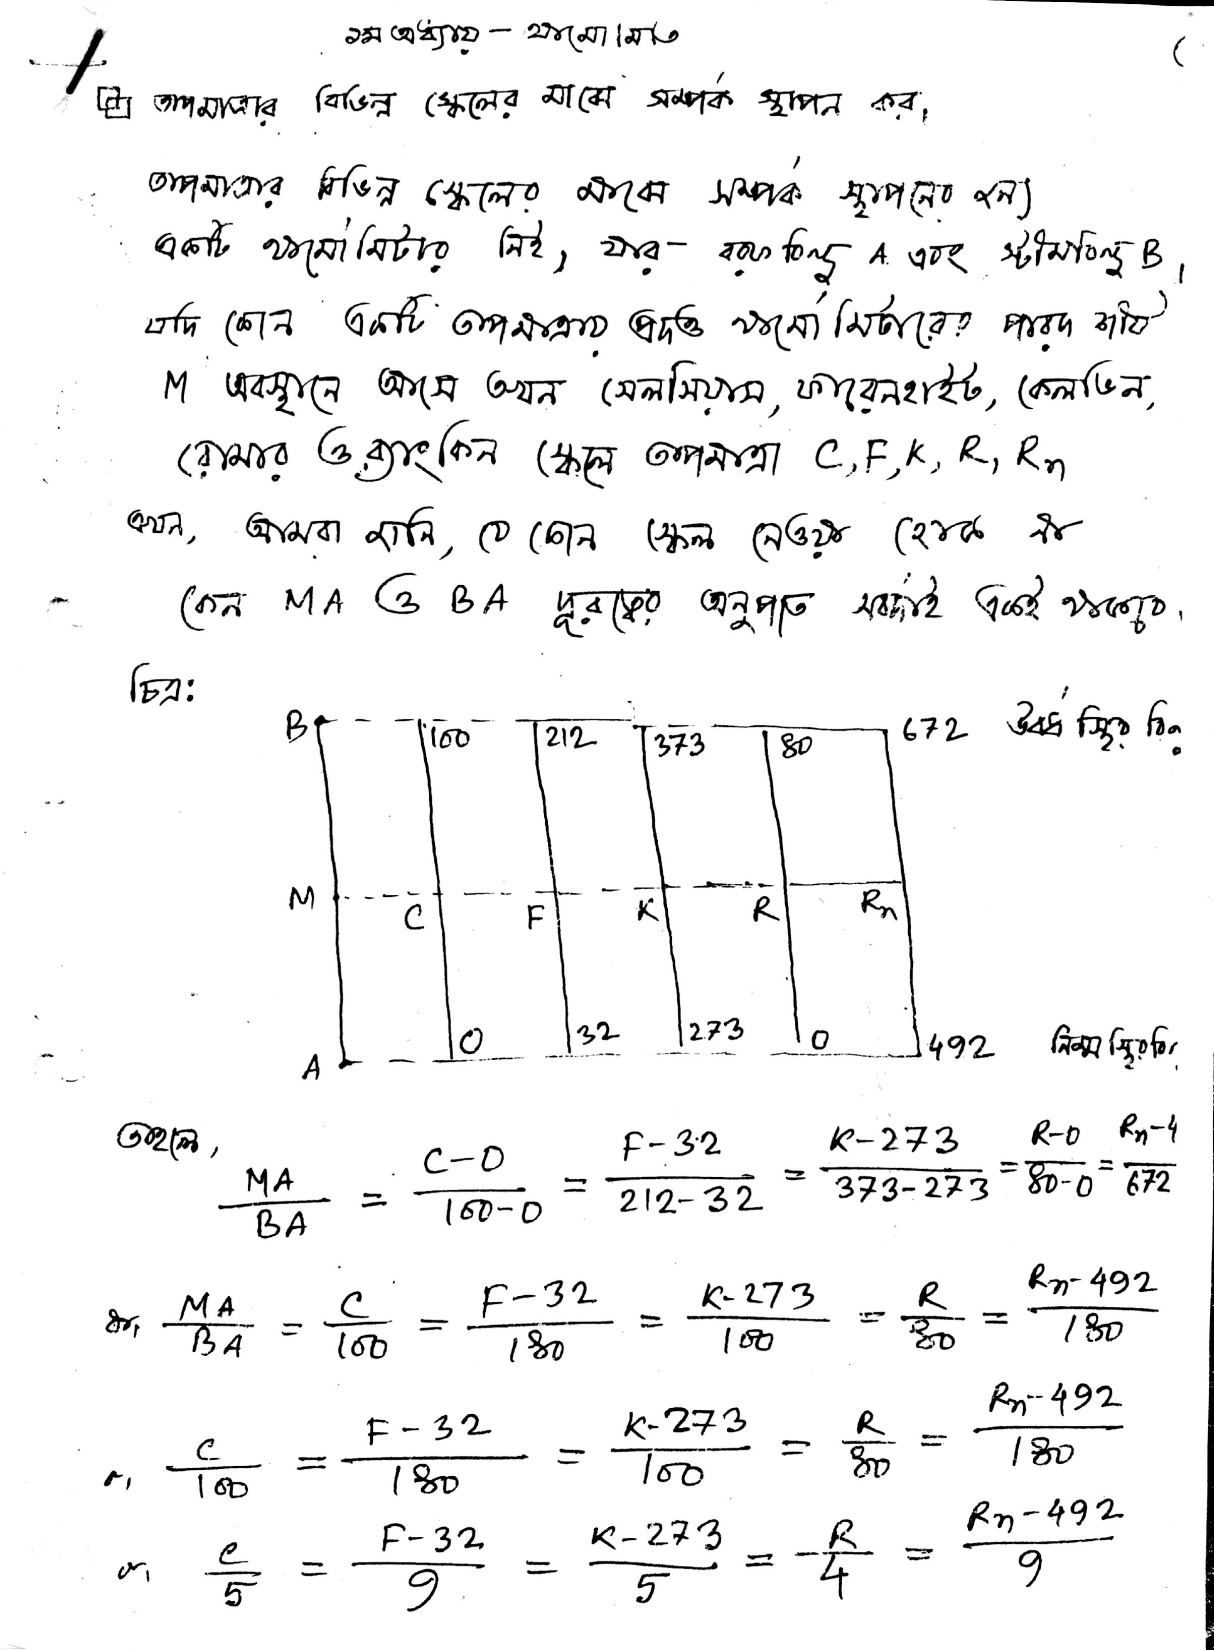 ১ম অধ্যায় – থার্মোমিতি
তাপমাত্রার বিভিন্ন স্কেলের মাঝে সম্পর্ক স্থাপন কর।
তাপমাত্রার বিভিন্ন স্কেলের মাঝে সম্পর্ক স্থাপনের জন্য
একটি থার্মোমিটার নিই, যার- বরফ বিন্দু A এবং স্টীমবিন্দু B,
যদি কোন একটি তাপমাত্রায় প্রদত্ত থার্মোমিটারের পারদ শীর্ষ
M অবস্থানে আসে তখন সেলসিয়াস, ফারেনহাইট, কেলভিন,
রোমার ও র‍্যাংকিন স্কেলে তাপমাত্রা C, F, K, R, Rn
এখন, আমরা জানি, যে কোন স্কেল নেওয়া হোক না
কেন MA ও BA দূরত্বের অনুপাত সর্বদাই একই থাকবে।
চিত্র:
B 100 212 373 80 672 ঊর্ধ্ব স্থির বিন্
M C F K R Rn
A 0 32 273 0 492 নিম্ন স্থির বি
তাহলে, MA/BA = C-0/100-0 = F-32/212-32 = K-273/373-273 = R-0/80-0 = Rn-4/672
বা, MA/BA = C/100 = F-32/180 = K-273/100 = R/80 = Rn-492/180
বা, C/100 = F-32/180 = K-273/100 = R/80 = Rn-492/180
বা, C/5 = F-32/9 = K-273/5 = R/4 = Rn-492/9